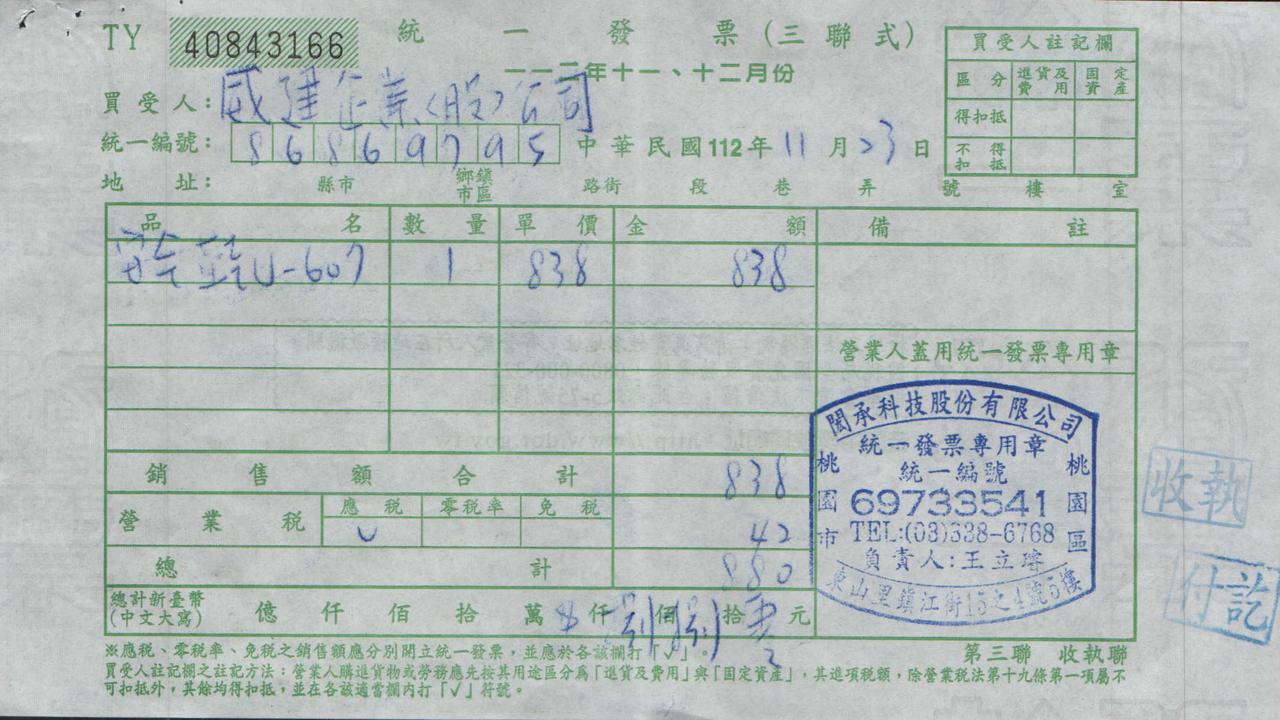 TY 40843166 統一發票(三聯式)
一一二年十一、十二月份
買受人註記欄
區分 進貨及費用 固定資產
得扣抵
不得扣抵
買受人:威建企業(股)公司
統一編號:86869795 中華民國112年11月23日
地址: 縣市 鄉鎮市區 路街 段 巷 弄 號 樓 室
品名 數量 單價 金額 備註
U-607 1 838 838
營業人蓋用統一發票專用章
銷售額合計 838
營業稅 應稅 零稅率 免稅
V 42
總計 880
總計新臺幣(中文大寫) 億 仟 佰 拾 萬 仟 捌佰 捌拾 零元
閎承科技股份有限公司
統一發票專用章
統一編號
桃園市 桃園區
69733541
TEL:(03)338-6768
負責人:王立璿
東山里鎮江街15之4號5樓
收執
付訖
※應稅、零稅率、免稅之銷售額應分別開立統一發票,並應於各該欄打「✓」。
第三聯 收執聯
買受人註記欄之註記方法:營業人購進貨物或勞務應先按其用途區分為「進貨及費用」與「固定資產」,其進項稅額,除營業稅法第十九條第一項屬不
可扣抵外,其餘均得扣抵,並在各該適當欄內打「✓」符號。